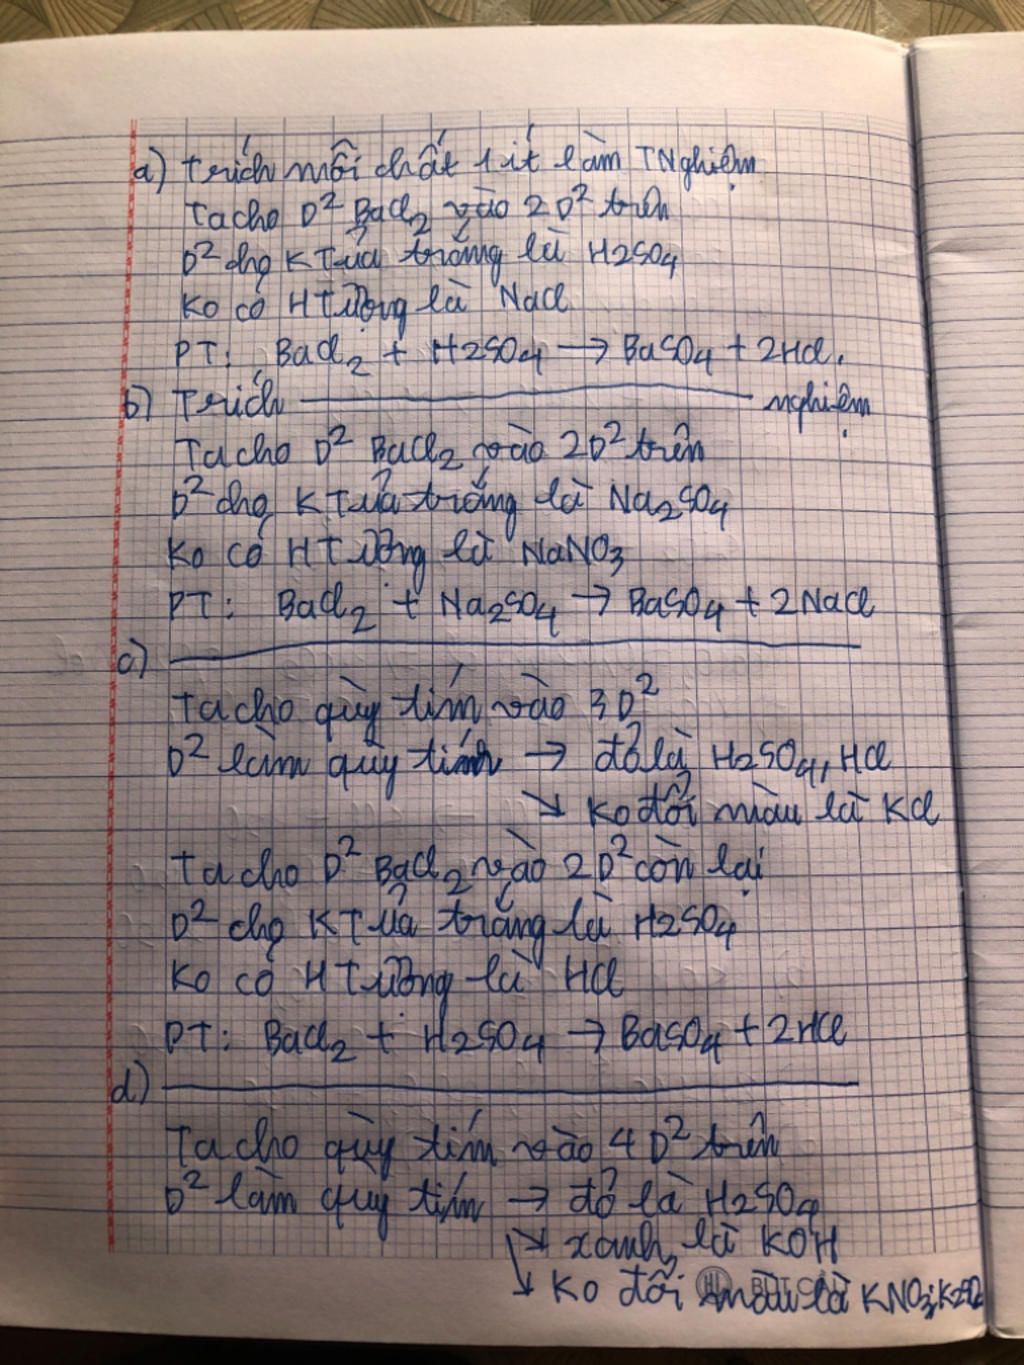 a) Trích mỗi chất 1 ít làm TNghiệm
Ta cho D² BaCl₂ vào 2D² trên
D² chọ KTủa trắng là H2SO4
Ko có HTượng là NaCl
PT: BaCl₂ + H2SO4 → BaSO4 + 2HCl.
b) Trích ——— nghiệm
Ta cho D² BaCl₂ vào 2D² trên
D² chọ KTủa trắng là Na₂SO4
Ko có HTượng là NaNO3
PT: BaCl₂ + Na₂SO4 → BaSO4 + 2NaCl
c) ———
Ta cho quỳ tím vào 3D²
D² làm quỳ tím → đỏ là H2SO4, HCl
↘ Ko đổi màu là KCl
Ta cho D² BaCl₂ vào 2D² còn lại
D² chọ KTủa trắng là H2SO4
Ko có HTượng là HCl
PT: BaCl₂ + H2SO4 → BaSO4 + 2HCl
d) ———
Ta cho quỳ tím vào 4D² trên
D² làm quỳ tím → đỏ là H2SO4
↘ xanh là KOH
↘ Ko đổi màu là KNO3;